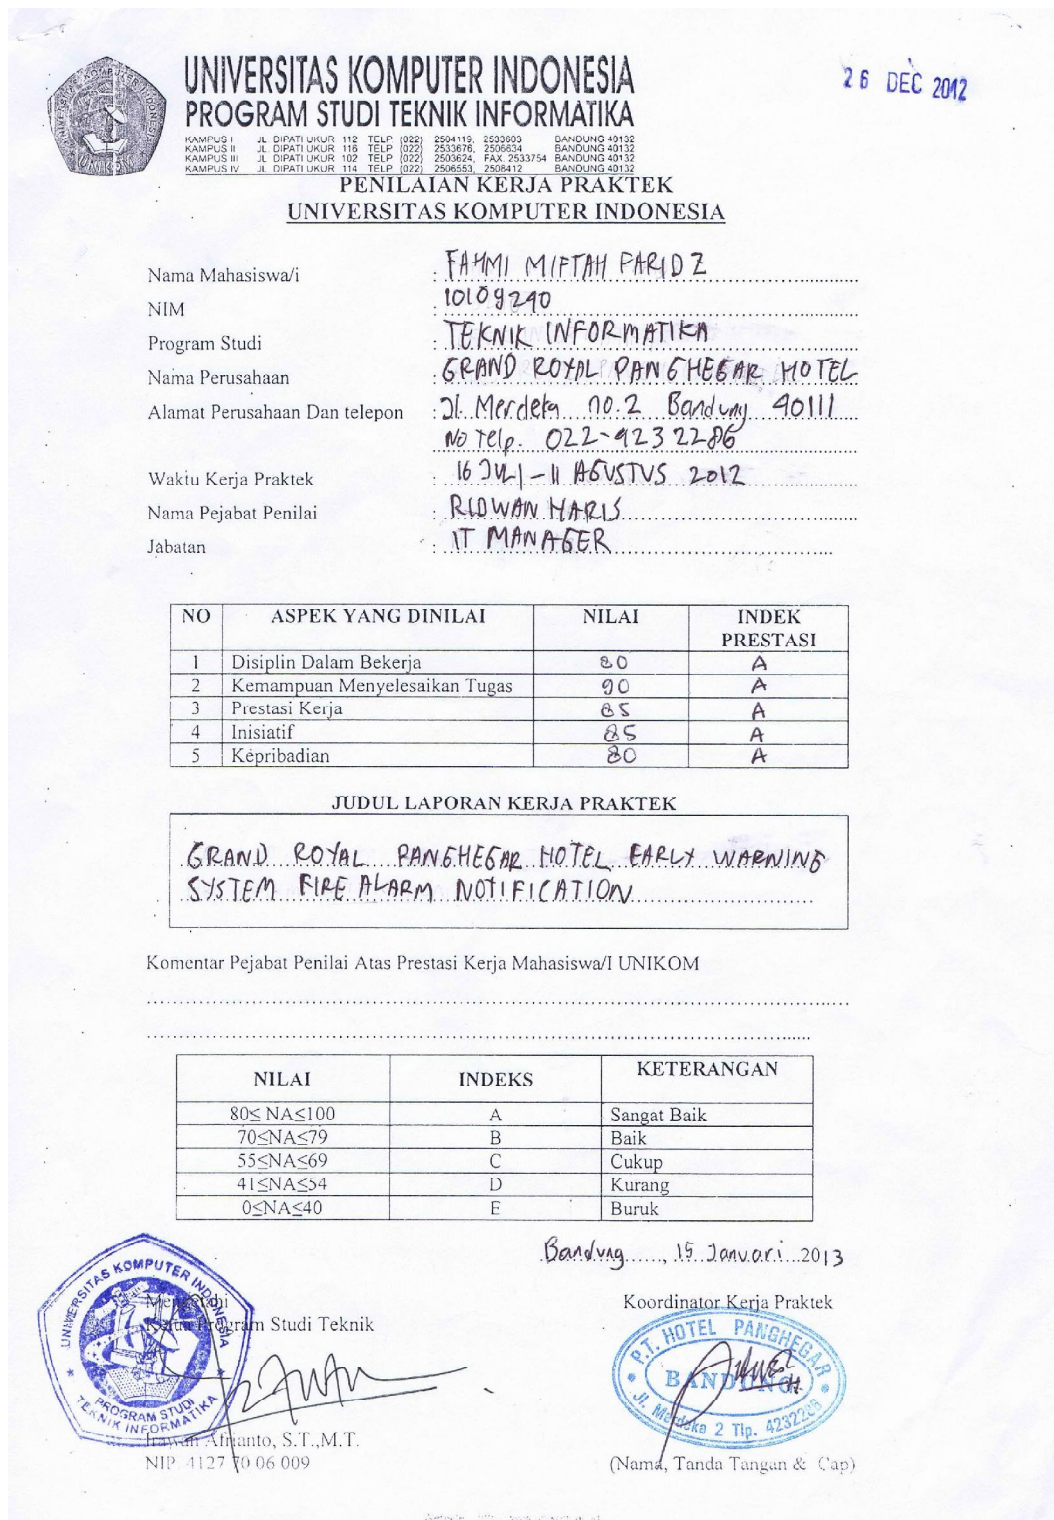 UNIVERSITAS KOMPUTER INDONESIA
PROGRAM STUDI TEKNIK INFORMATIKA
26 DEC 2012
KAMPUS I JL. DIPATI UKUR 112 TELP (022) 2504119, 2533603 BANDUNG 40132
KAMPUS II JL. DIPATI UKUR 116 TELP (022) 2533676, 2506634 BANDUNG 40132
KAMPUS III JL. DIPATI UKUR 102 TELP (022) 2503624, FAX. 2533754 BANDUNG 40132
KAMPUS IV JL. DIPATI UKUR 114 TELP (022) 2506553, 2508412 BANDUNG 40132
PENILAIAN KERJA PRAKTEK
UNIVERSITAS KOMPUTER INDONESIA
Nama Mahasiswa/i : FAHMI MIFTAH FARIDZ
NIM : 10109290
Program Studi : TEKNIK INFORMATIKA
Nama Perusahaan : GRAND ROYAL PANGHEGAR HOTEL
Alamat Perusahaan Dan telepon : Jl. Merdeka no. 2 Bandung 40111
No Telp. 022-4232286
Waktu Kerja Praktek : 16 JULI - 11 AGUSTUS 2012
Nama Pejabat Penilai : RIDWAN HARIS
Jabatan : IT MANAGER
NO ASPEK YANG DINILAI NILAI INDEK PRESTASI
1 Disiplin Dalam Bekerja 80 A
2 Kemampuan Menyelesaikan Tugas 90 A
3 Prestasi Kerja 85 A
4 Inisiatif 85 A
5 Kepribadian 80 A
JUDUL LAPORAN KERJA PRAKTEK
GRAND ROYAL PANGHEGAR HOTEL EARLY WARNING
SYSTEM FIRE ALARM NOTIFICATION
Komentar Pejabat Penilai Atas Prestasi Kerja Mahasiswa/I UNIKOM
NILAI INDEKS KETERANGAN
80≤ NA≤100 A Sangat Baik
70≤NA≤79 B Baik
55≤NA≤69 C Cukup
41≤NA≤54 D Kurang
0≤NA≤40 E Buruk
Bandung, 15 Januari 2013
Mengetahui
Ketua Program Studi Teknik
UNIVERSITAS KOMPUTER INDONESIA
PROGRAM STUDI
TEKNIK INFORMATIKA
Irawan Afrianto, S.T.,M.T.
NIP. 4127 70 06 009
Koordinator Kerja Praktek
P.T. HOTEL PANGHEGAR
BANDUNG
Jl. Merdeka 2 Tlp. 4232286
(Nama, Tanda Tangan & Cap)